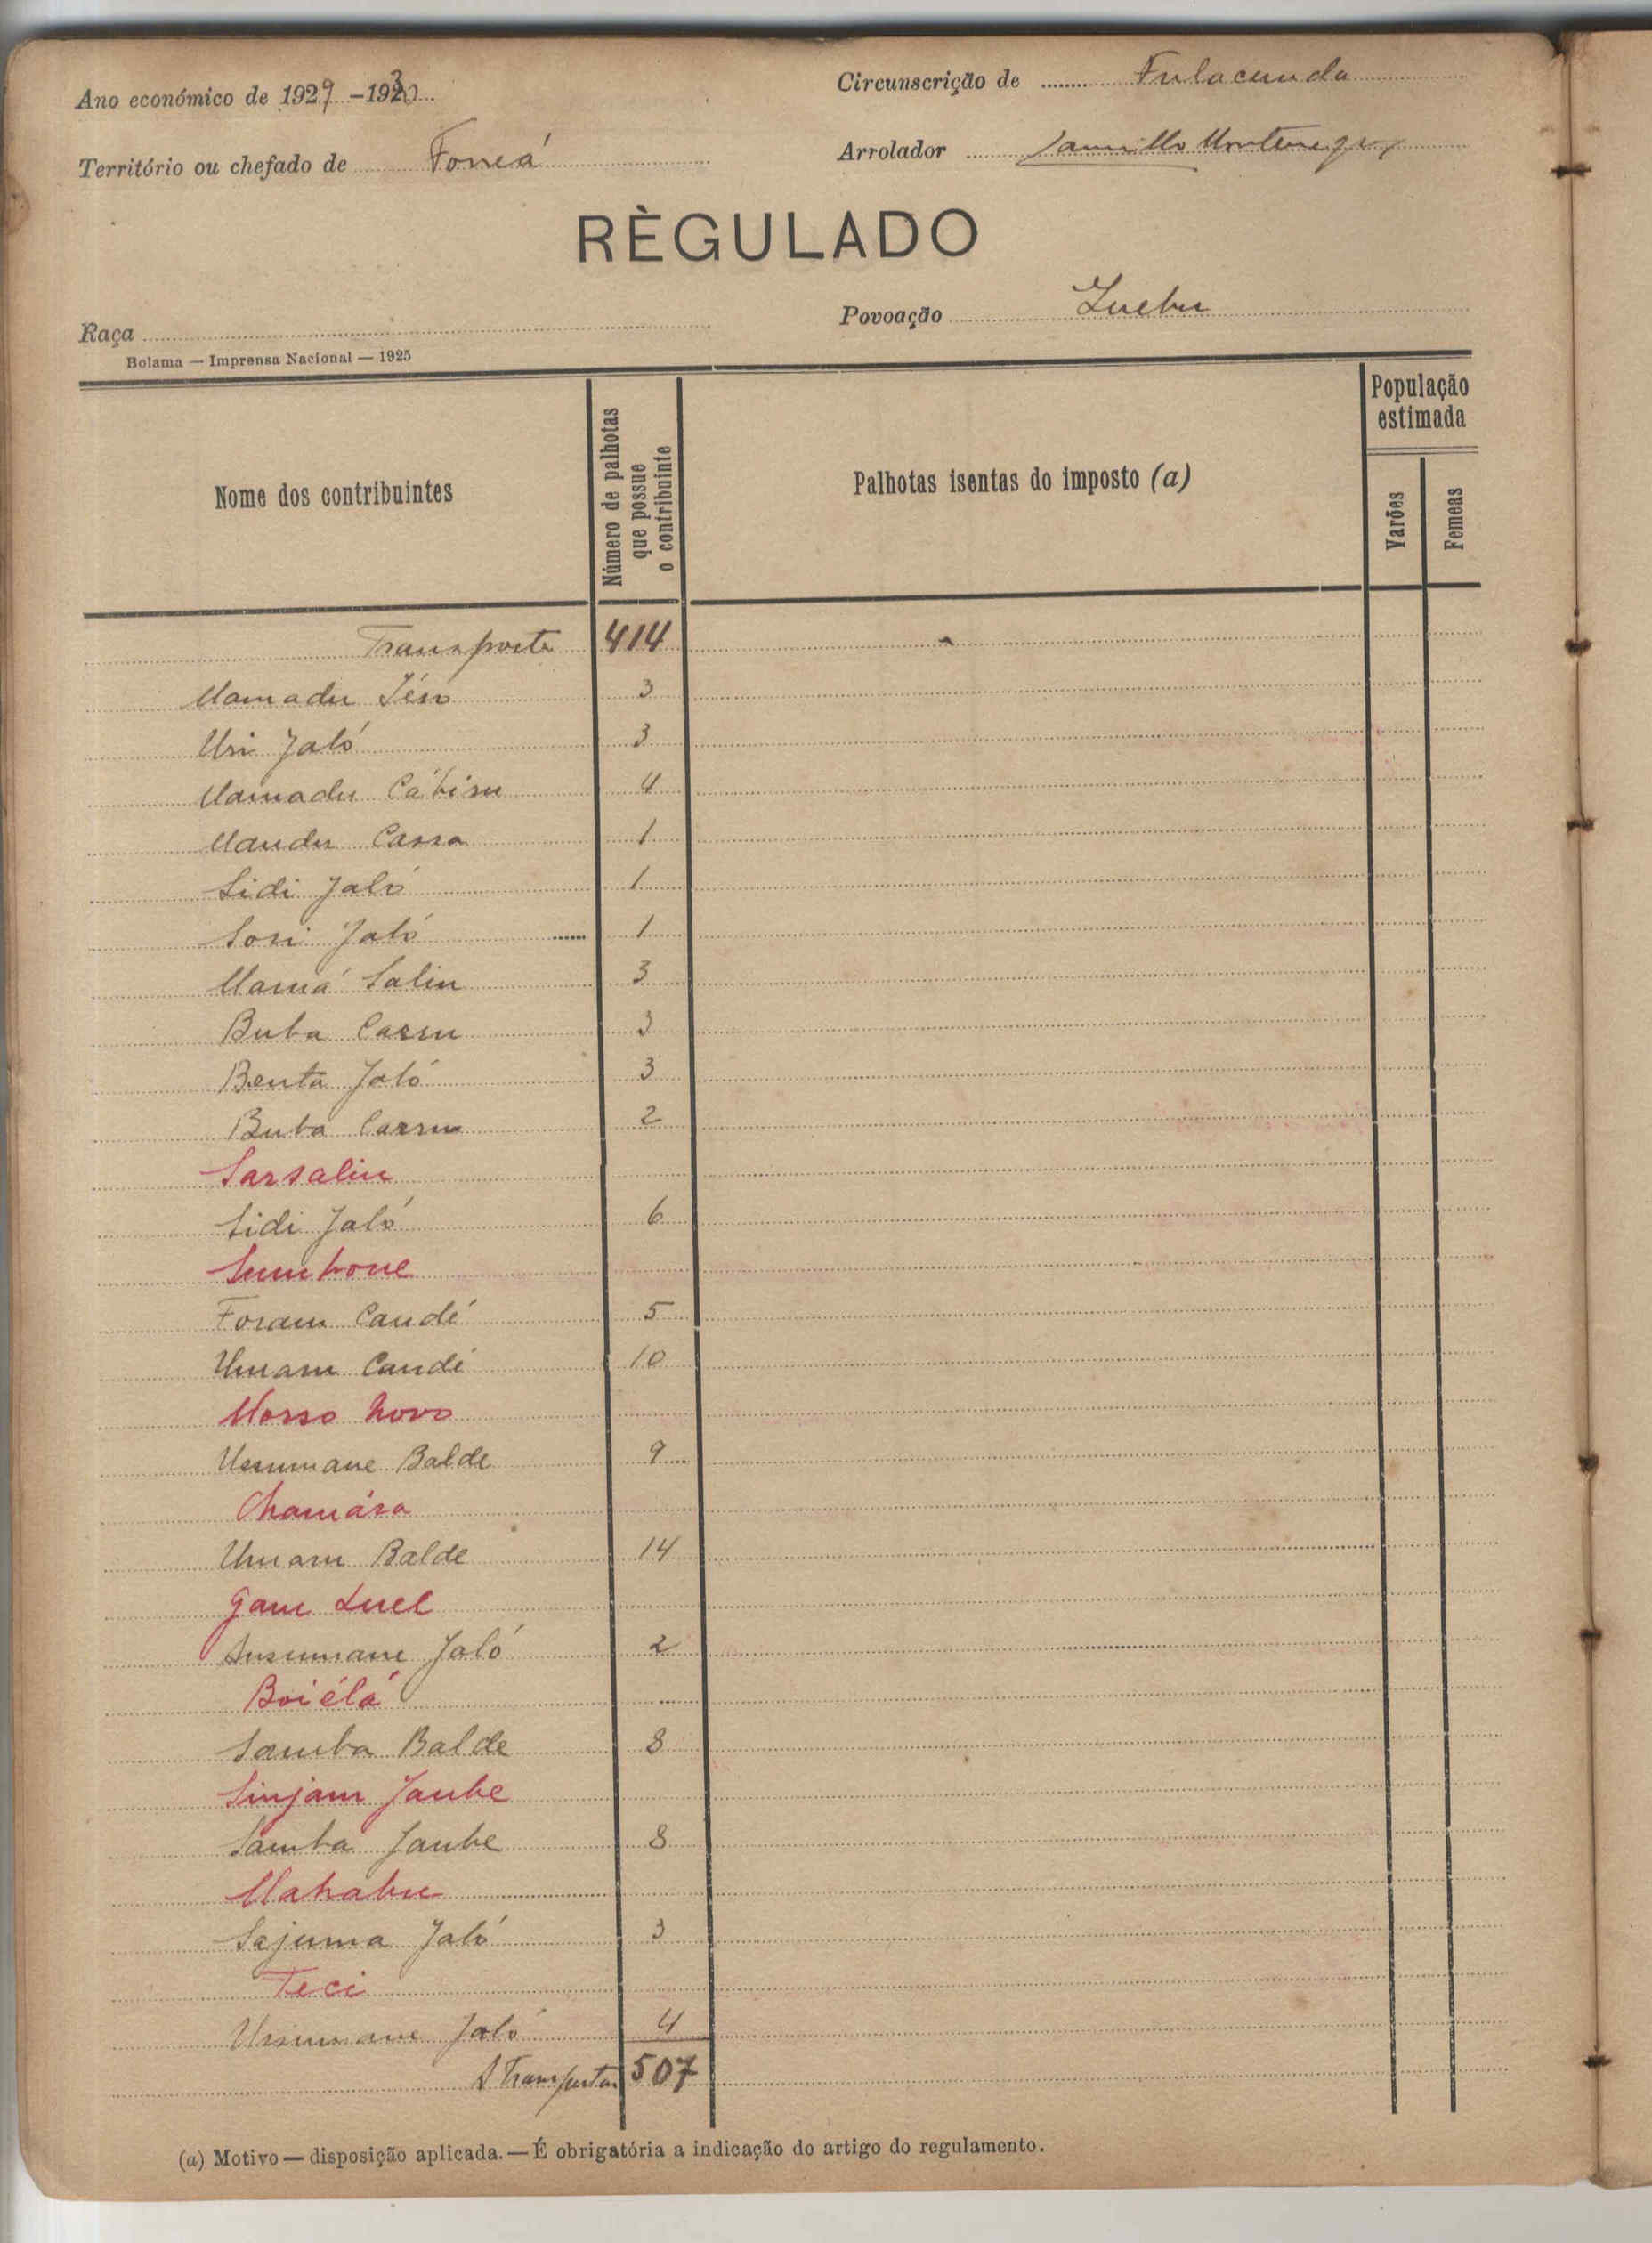 Ano económico de 1929-1930
Circunscrição de Fulacunda
Território ou chefado de Forreá
Arrolador Camillo Montenegro
RÈGULADO
Raça
Povoação
Bolama — Imprensa Nacional — 1925
Nome dos contribuintes
Número de palhotas que possue o contribuinte
Palhotas isentas do imposto (a)
População estimada
Varões
Femeas
Transporte 414
Mamadu 3
Uri Jaló 3
Mamadu 4
Mandu 1
Sidi Jaló 1
Sori Jaló 1
Mamá Saliu 3
Buba 3
Benta Jaló 3
Buba 2
Sarsaliu
Sidi Jaló 6
Foram Candé 5
Umaru Candé 10
Novo
Ussumane Balde 9
Umaru Balde 14
Luel
Jaló 2
Boiélá
Samba Balde 8
Sinjam Jaube
Samba Jaube 8
Sajuma Jaló 3
Teci
Ussumane Jaló 4
A Transportar 507
(a) Motivo — disposição aplicada. — É obrigatória a indicação do artigo do regulamento.